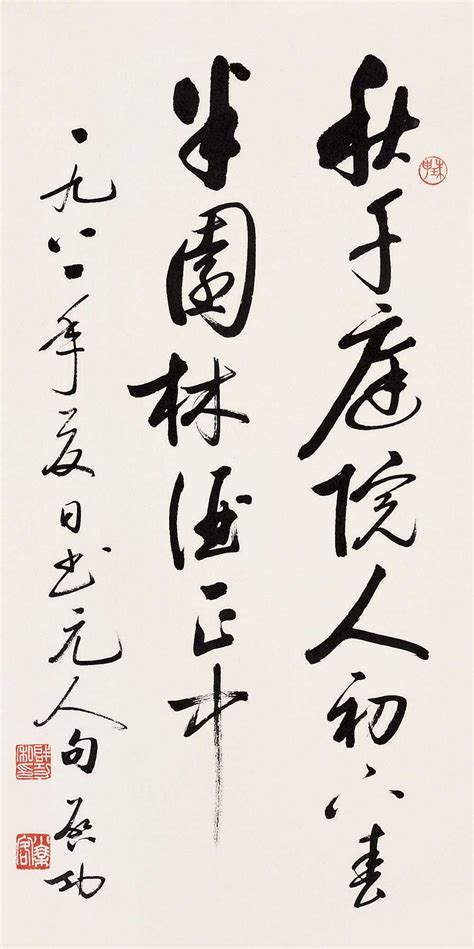 秋千庭院人初下春
半園林酒正中
一九八一年夏日书元人句 启功